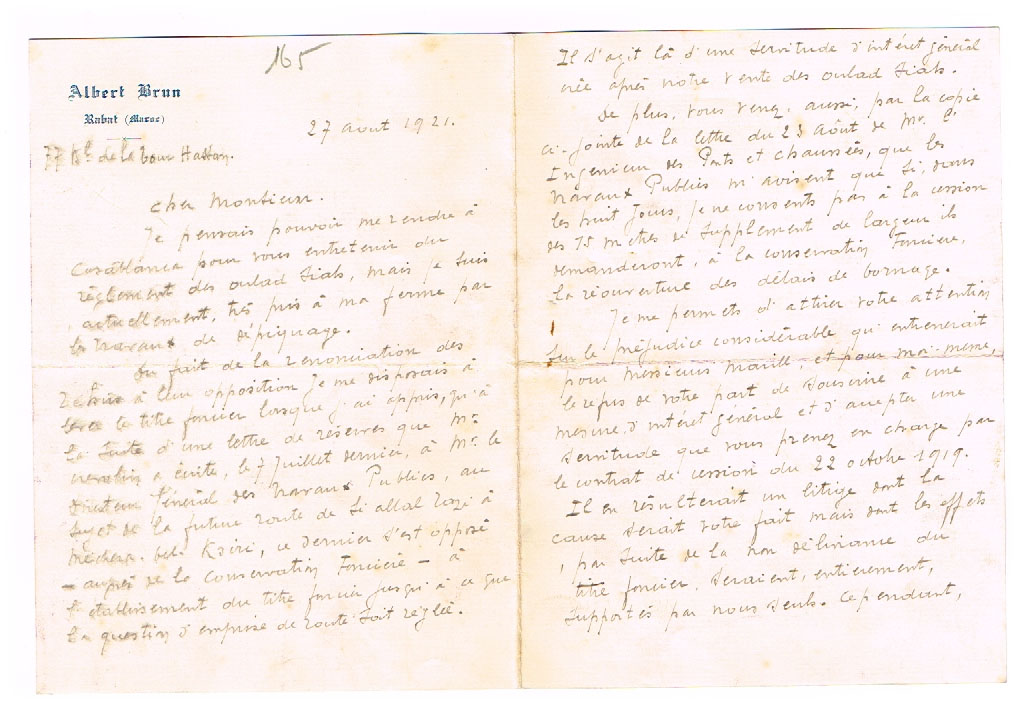 165
Albert Brun
Rabat (Maroc)
27 aout 1921.
77 Bd de la Tour Hassan.
Cher Monsieur.
Je pensais pouvoir me rendre à
Casablanca pour vous entretenir du
règlement des oulad Ziab, mais je suis
actuellement, très pris à ma ferme par
les travaux de dépiquage.
Du fait de la renonciation des
à leur opposition je me disposais à
le titre foncier lorsque j'ai appris, qu'à
la suite d'une lettre de réserves que Mr.
a écrite, le 7 juillet dernier, à Mr. le
Directeur Général des Travaux Publics, au
sujet de la future route de Si allal Tazi à
Mechra. bel. Ksiri, ce dernier s'est opposé
- auprès de la Conservation Foncière - à
l'etablissement du titre foncier jusqu'à ce que
la question d'emprise de route soit réglée.
Il s'agit là d'une servitude d'intéret général
crée après notre vente des oulad Ziab.
De plus, vous venez, aussi, par la copie
ci-jointe de la lettre du 23 Août de Mr. l'
Ingenieur des Ponts et chaussées, que les
Travaux Publics m'avisent que si, dans
les huit jours, je ne consens pas à la cession
des 75 mètres de supplement de largeur ils
demanderont, à la conservation Foncière,
la réouverture des délais de bornage.
Je me permets d'attirer votre attention
sur le préjudice considérable qu'entrenerait
pour Messieurs, et pour moi-meme,
le refus de votre part de souscrire à une
mesure d'intéret général et d'accepter une
servitude que vous prenez en charge par
le contrat de cession du 22 octobre 1919.
Il en résulterait un litige dont la
cause serait votre fait mais dont les effets
, par suite de la non délivrance du
titre foncier, seraient, entièrement,
supportés par nous seuls. Cependant,